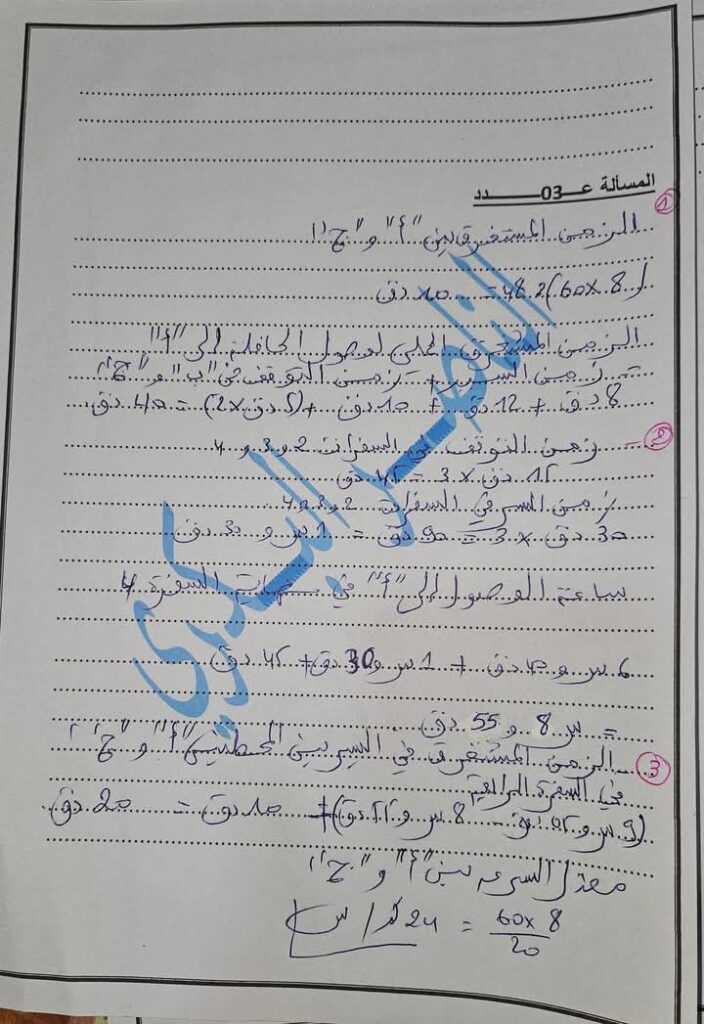 المسألة عـــ03ــــدد
1
الزمن المستغرق بين "أ" و "ج"
(8 × 60) : 48 = 10 دق
الزمن المستغرق الكلي لوصول الحافلة إلى "أ"
= زمن السير + زمن التوقف في "ب" و "ج"
8 دق + 12 دق + 10 دق + (5 دق × 2) = 40 دق
2 - زمن التوقف في السفرات 2 و 3 و 4
15 دق × 3 = 45 دق
زمن السير في السفرات 2 و 3 و 4
30 دق × 3 = 90 دق = 1 س و 30 دق
ساعة الوصول إلى "أ" في نهاية السفرة 4
6 س و 40 دق + 1 س و 30 دق + 45 دق
= 8 س و 55 دق
3 - الزمن المستغرق في السير بين المحطتين "أ" و "ج"
في السفرة الرابعة
(9 س و دق - 8 س و دق) + 10 دق = 20 دق
معدل السرعة بين "أ" و "ج"
60 × 8 / 20 = 24 كم/س
الناصر البكري